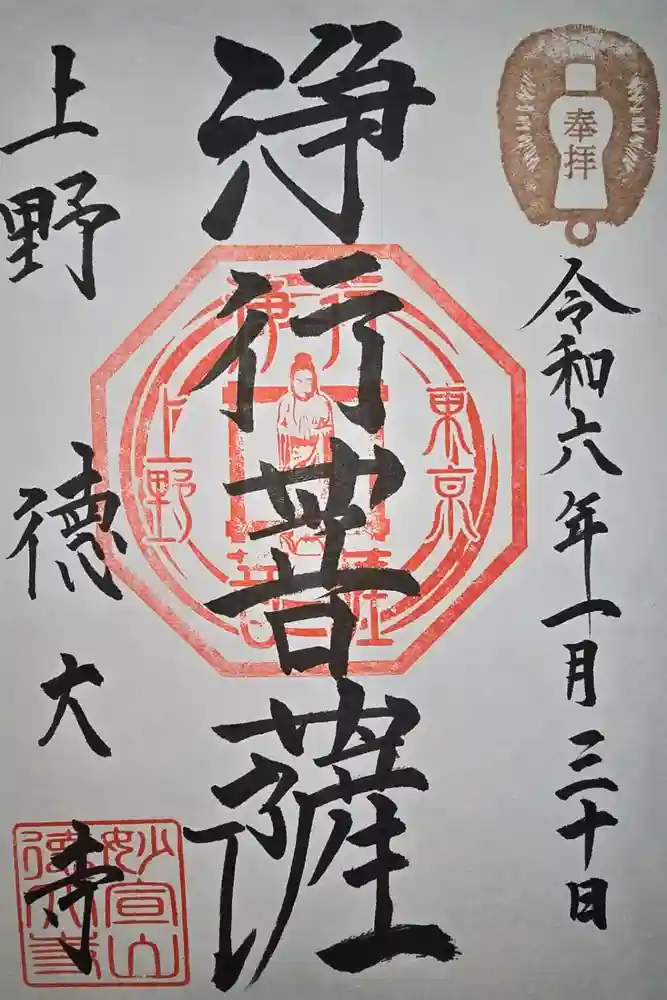 奉拝
令和六年一月三十日
浄行菩薩
浄行
東京
上野
菩薩
上野 徳大寺
妙宣山
徳大寺